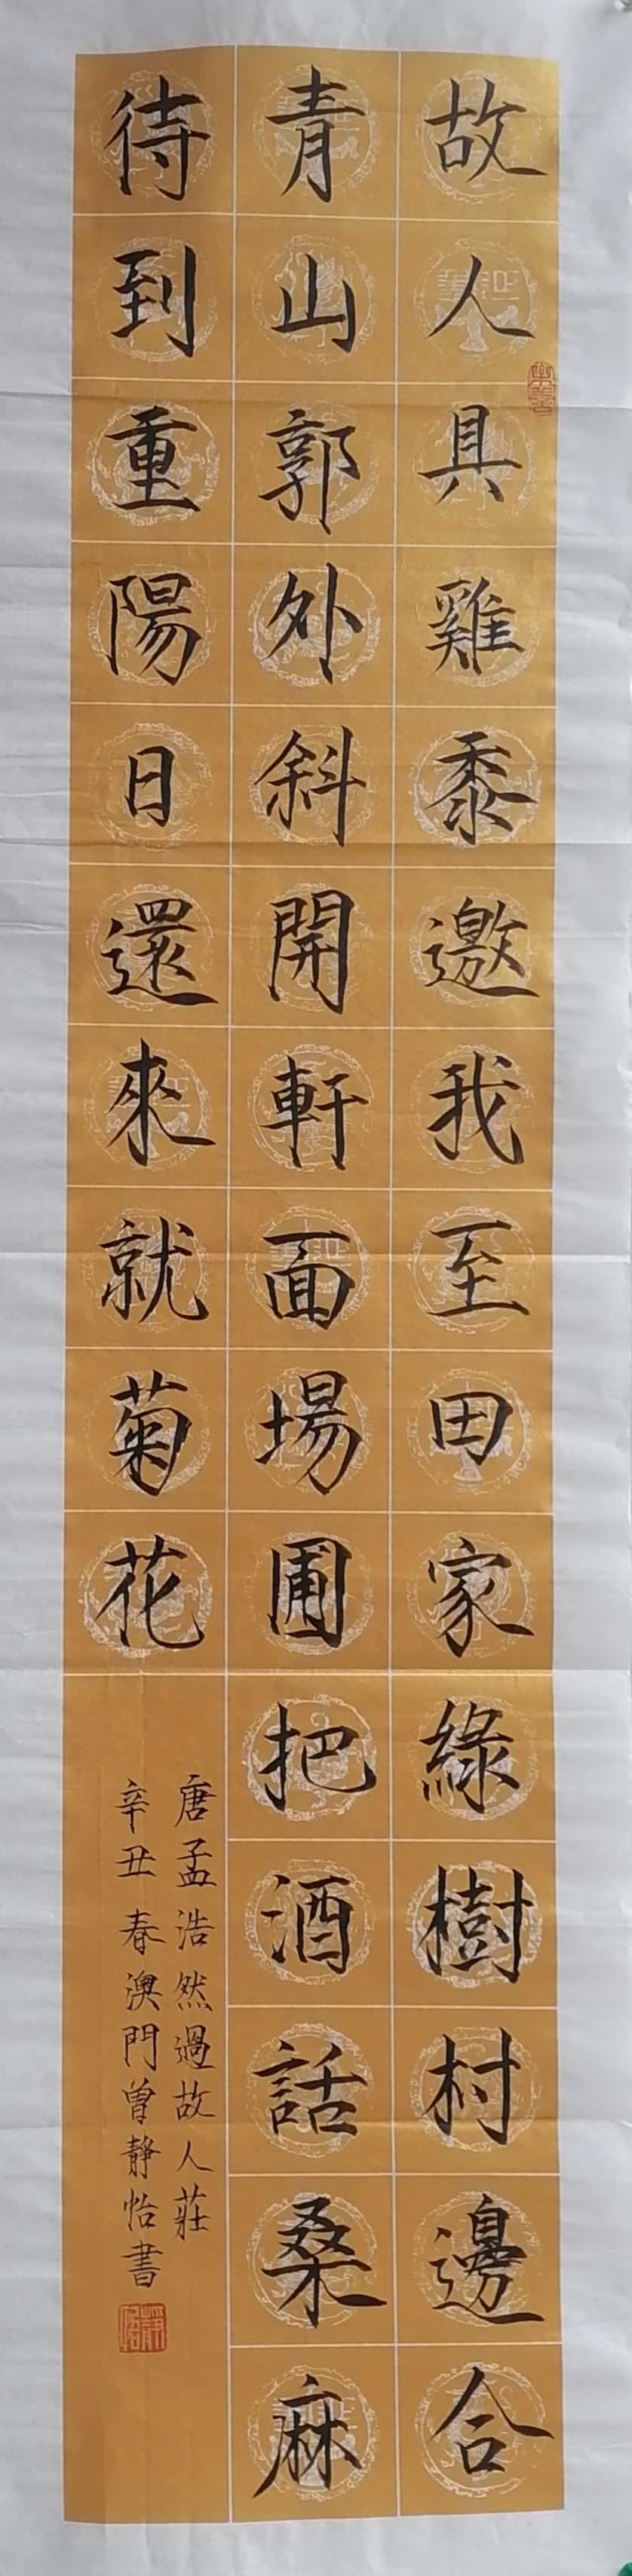 故人具雞黍邀我至田家綠樹村邊合
青山郭外斜開軒面場圃把酒話桑麻
待到重陽日還來就菊花
唐孟浩然過故人莊
辛丑春澳門曾靜怡書